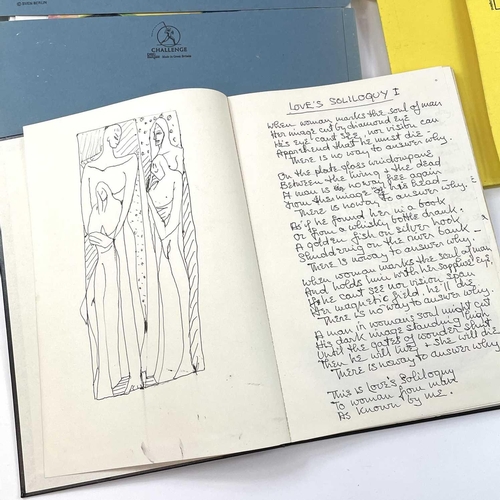 CHALLENGE
LOVE'S SOLILOQUY I
When woman marks the soul of man
Her image cut by diamond eye
His eye cant see, nor vision can
Apprehend that he must die –
There is no way to answer why.
On the plate glass windowpane
Between the living & the dead
A man is no way free again
From the image his head –
There is no way to answer why.
As if he found her in a book
Or from a whisky bottle drank.
A golden fish on silver hook
Shuddering on the river bank –
There is no way to answer why.
When woman marks the soul of man
And holds him with her eye,
He cant see nor vision span
Her magnetic field. he'll die
There is no way to answer why.
A man in womans soul might cut
His dark image standing high
Until the gates of wonder shut
Then he will live & she will die
There is no way to answer why
This is Love's Soliloquy
To woman from man
As known by me.